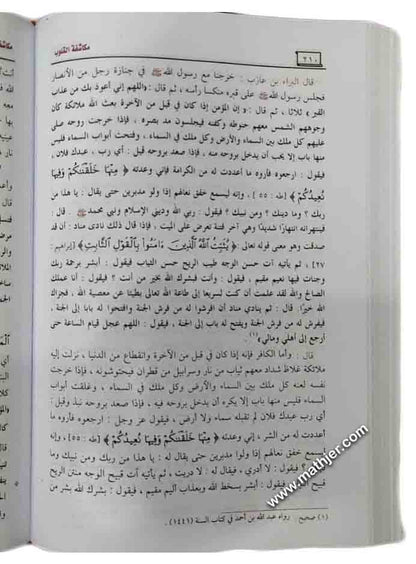 ٢١٠ مكاشفة القلوب
قال البراء بن عازب : خرجنا مع رسول الله ﷺ في جنازة رجل من الأنصار
فجلس رسول الله ﷺ على قبره منكسا رأسه ، ثم قال : «اللهم إني أعوذ بك من عذاب
القبر» ثلاثا ، ثم قال : « إن المؤمن إذا كان في قبل من الآخرة بعث الله ملائكة كان
وجوههم الشمس معهم حنوطه وكفنه فيجلسون مد بصره ، فإذا خرجت روحه صلى
عليه كل ملك بين السماء والأرض وكل ملك في السماء ، وفتحت أبواب السماء فليس
منها باب إلا يحب أن يدخل بروحه منه ، فإذا صعد بروحه قيل : أي رب ، عبدك فلان ،
فيقول : ارجعوه فأروه ما أعددت له من الكرامة فإني وعدته ﴿ مِنْهَا خَلَقْنَكُمْ وَفِيهَا
نُعِيدُكُمْ ﴾ [طه : ٥٥] ، وإنه ليسمع خفق نعالهم إذا ولوا مدبرين حتى يقال : يا هذا من
ربك ؟ وما دينك ؟ ومن نبيك ؟ فيقول : ربي الله وديني الإسلام ونبي محمد ﷺ . قال :
فينتهرانه انتهارًا شديدًا وهي آخر فتنة تعرض على الميت ، فإذا قال ذلك نادى مناد : أن
صدقت وهو معنى قوله تعالى : ﴿ يُثَبِّتُ اللَّهُ الَّذِينَ ءَامَنُوا بِالْقَوْلِ الثَّابِتِ﴾ [إبراهيم :
٢٧] ، ثم يأتيه آت حسن الوجه طيب الريح حسن الثياب فيقول : أبشر برحمة ربك
وجنات فيها نعيم مقيم ، فيقول : وأنت فبشرك الله بخير من أنت ؟ فيقول : أنا عملك
الصالح والله لقد علمت أن كنت لسريعا إلى طاعة الله تعالى بطيئا عن معصية الله ، فجزاك
الله خيرًا. قال : ثم ينادي مناد أن افرشوا له من فرش الجنة وافتحوا له بابا إلى الجنة ،
فيفرش له من فرش الجنة ويفتح له باب إلى الجنة ، فيقول : اللهم عجل قيام الساعة حتى
أرجع إلى أهلي ومالي»(١) .
قال : وأما الكافر فإنه إذا كان في قبل من الآخرة وانقطاع من الدنيا ، نزلت إليه
ملائكة غلاظ شداد معهم ثياب من نار وسرابيل من قطران فيحتوشونه ، فإذا خرجت
نفسه لعنه كل ملك بين السماء والأرض وكل ملك في السماء ، وغلقت أبواب
السماء فليس منها باب إلا يكره أن يدخل بروحه منه ، فإذا صعد بروحه نبذ وقيل :
أي رب عبدك فلان لم تقبله سماء ولا أرض ، فيقول عز وجل : ارجعوه فأروه ما
أعددت له من الشر ، إني وعدته ﴿ مِنْهَا خَلَقْنَكُمْ وَفِيهَا نُعِيدُكُمْ﴾ [طه : ٥٥] ، وإنه
ليسمع خفق نعالهم إذا ولوا مدبرين حتى يقال له : يا هذا من ربك ومن نبيك وما
دينك ؟ فيقول : لا أدري ، فيقال له : لا دريت ، ثم يأتيه آت قبيح الوجه منتن الريح
قبيح الثياب ، فيقول : أبشر بسخط الله وبعذاب أليم مقيم ، فيقول : بشرك الله بشر من
(١) صحيح . رواه عبد الله بن أحمد في كتاب السنة (١٤٤١) .
www.mathjer.com